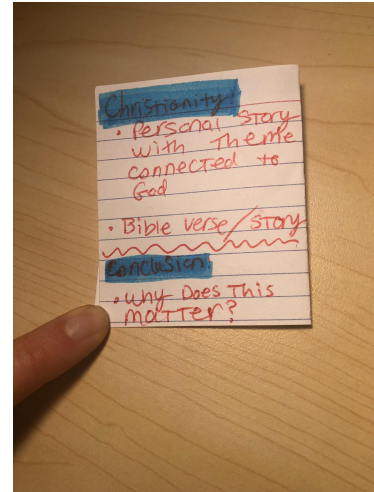 Christianity:
• Personal Story
with Theme
connected to
God
• Bible verse/Story
Conclusion:
• Why Does This
matter?